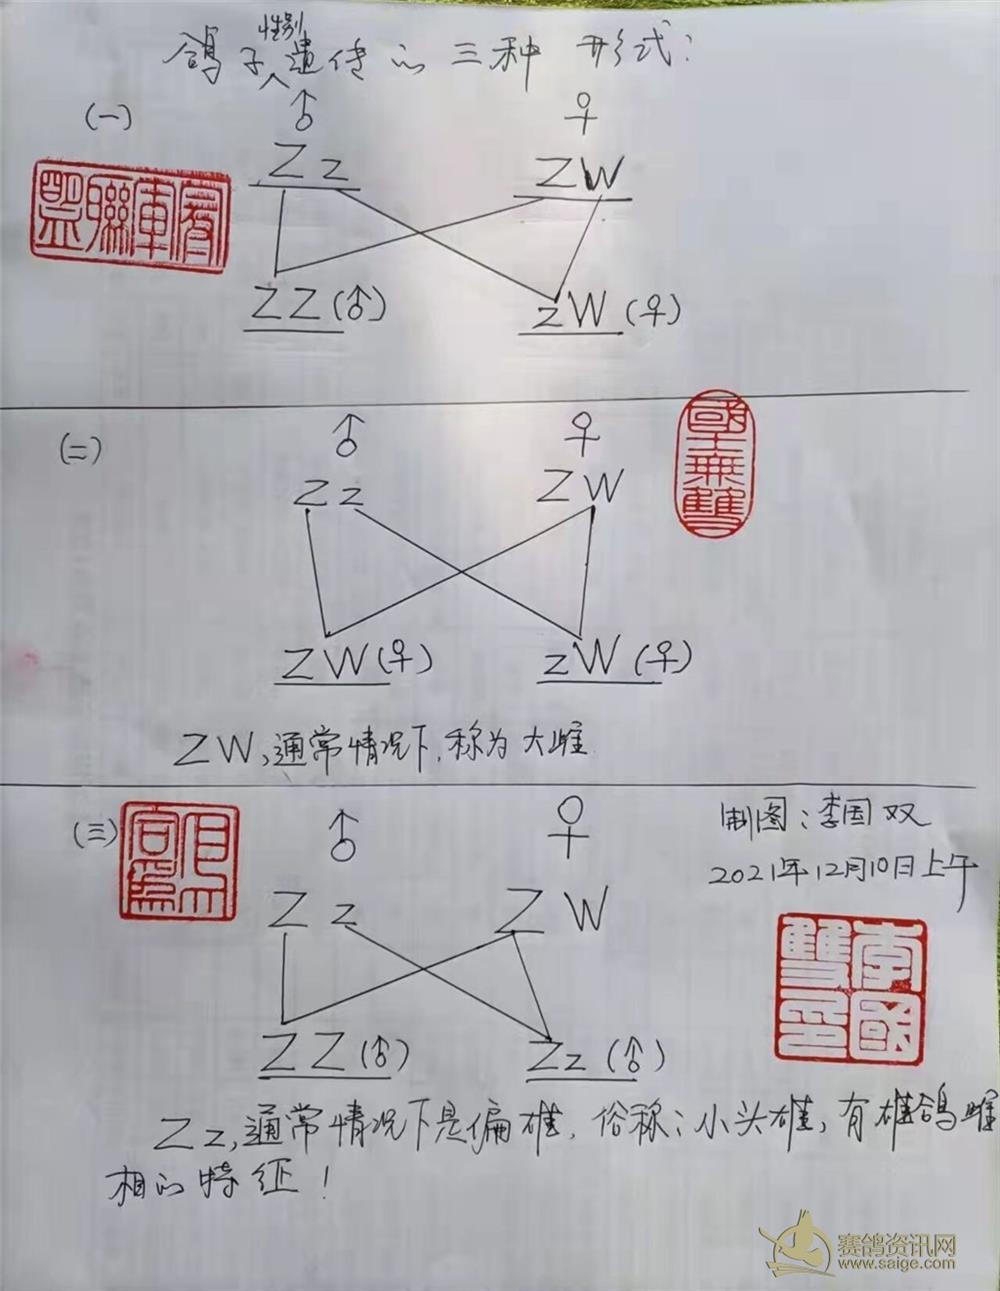 鸽子性别遗传的三种形式：
(一)
♂ ♀
Zz ZW
ZZ(♂) zW(♀)
(二)
♂ ♀
Zz ZW
ZW(♀) zW(♀)
國士無雙
ZW,通常情况下,称为大雌
(三)
♂ ♀
制图：李国双
2021年12月10日上午
Zz ZW
李國雙印
ZZ(♂) Zz(♂)
Zz,通常情况下是偏雄,俗称：小头雄,有雄鸽雌
相的特征！
赛鸽资讯网
www.saige.com